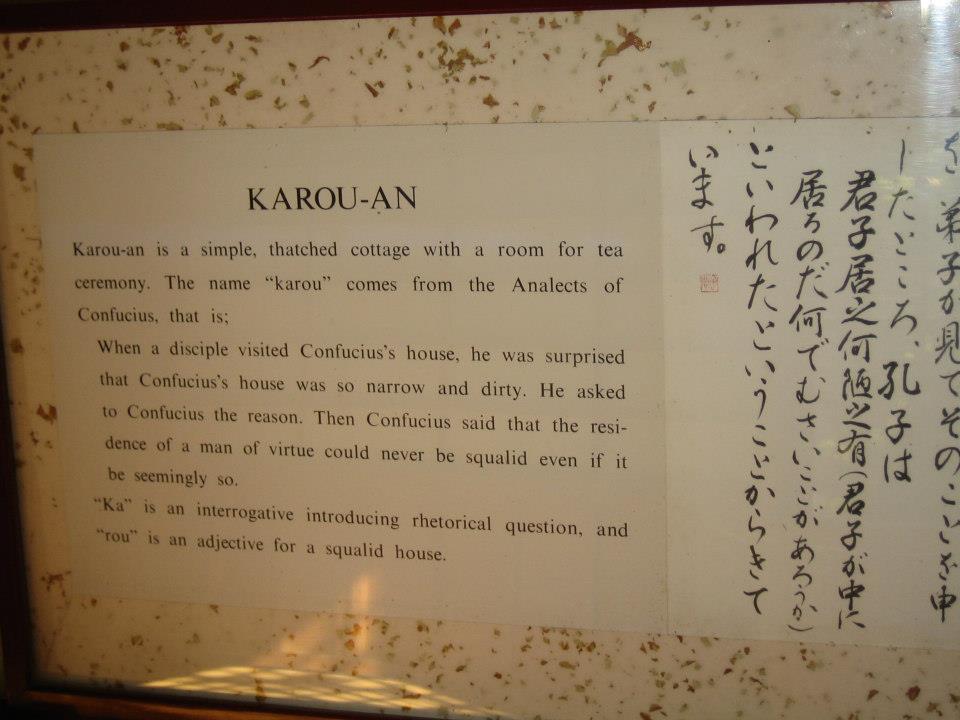 KAROU-AN
Karou-an is a simple, thatched cottage with a room for tea
ceremony. The name “karou” comes from the Analects of
Confucius, that is;
When a disciple visited Confucius’s house, he was surprised
that Confucius’s house was so narrow and dirty. He asked
to Confucius the reason. Then Confucius said that the resi-
dence of a man of virtue could never be squalid even if it
be seemingly so.
“Ka” is an interrogative introducing rhetorical question, and
“rou” is an adjective for a squalid house.
を弟子が見てそのことを申
したところ、孔子は
君子居之何陋之有（君子が中に
居るのだ何でむさいことがあろうか）
といわれたということからきて
います。